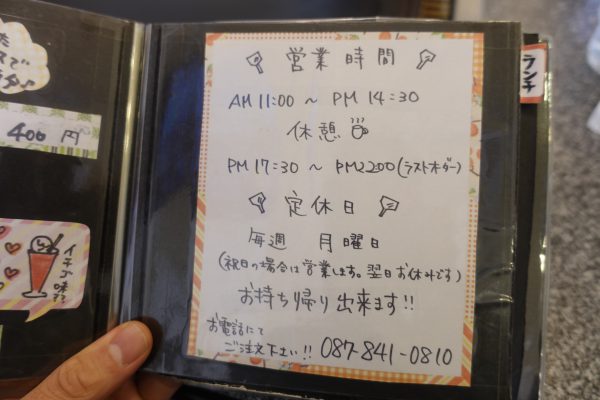 400円
イチゴ味
営業時間
AM 11:00 ～ PM 14:30
休憩
PM 17:30 ～ PM2200(ラストオーダー)
定休日
毎週 月曜日
(祝日の場合は営業します。翌日お休みです)
お持ち帰り出来ます!!
お電話にて
ご注文下さい!! 087-841-0810
ランチ